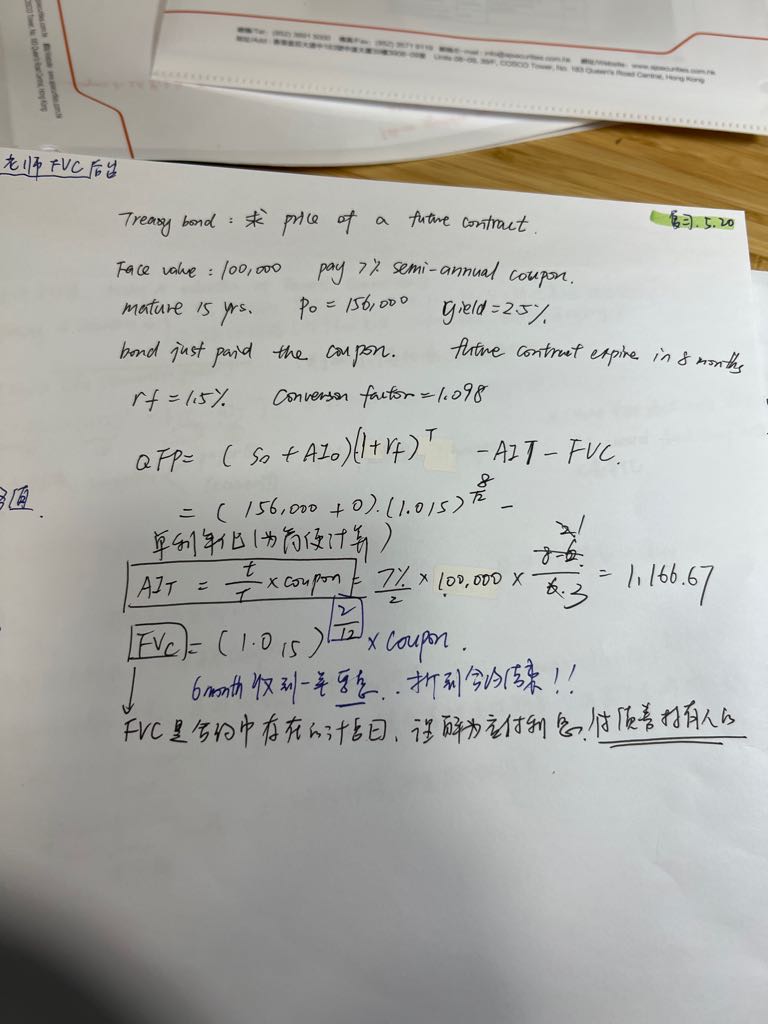 老师 FVC 后出
Treasy bond : 求 price of a future contract.
复习. 5.20
Face value : 100,000 pay 7% semi-annual coupon.
mature 15 yrs. P0 = 156,000 yield = 2.5%
bond just paid the coupon. future contract expire in 8 months
rf = 1.5% Conversion factor = 1.098
QFP = ( S0 + AI0 ) (1 + rf)^T - AIT - FVC.
= ( 156,000 + 0 ) . (1.015)^8/12 -
单利年化 (为简便计算)
AIT = t/T × coupon = 7%/2 × 100,000 × 8-6 2 1/6.3 = 1,166.67
FVC = (1.015)^2/12 × coupon.
6 month 收到一笔 . . 折到合约结束 !!
FVC 是合约中存在的计息日、理解为应付利息, 付债券持有人的